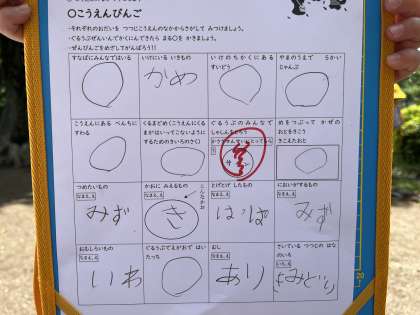 〇こうえんびんご
・それぞれのおだいを つつじこうえんのなかからさがして みつけましょう。
・ぐるうぷぜんいんでかくにんできたら まる〇を かきましょう。
・ぜんびんごをめざしてがんばろう!!
すなばにみんなではいる
いけにいる いきもの
かめ
いけのちかくにある
すいどう
やまのうえで 5かい
じゃんぷ
こうえんにある べんちに
すわる
くるまどめ(こうえんにくる
まがはいってこないように
するためのきいろのさく)
ぐるうぷのみんなで
しゃしんをとろう
めをつぶって かぜの
おとをきこう
きこえたおと
つめたいもの
なまえ
みず
かおに みえるもの
なまえ
き
こんなかお
とげとげ したもの
なまえ
はっぱ
においがするもの
なまえ
みず
おもしろいもの
なまえ
いわ
ぐるうぷでえがおで はい
たっち
むし
なまえ
あり
さいている つつじの はな
のいろ
いろ
20